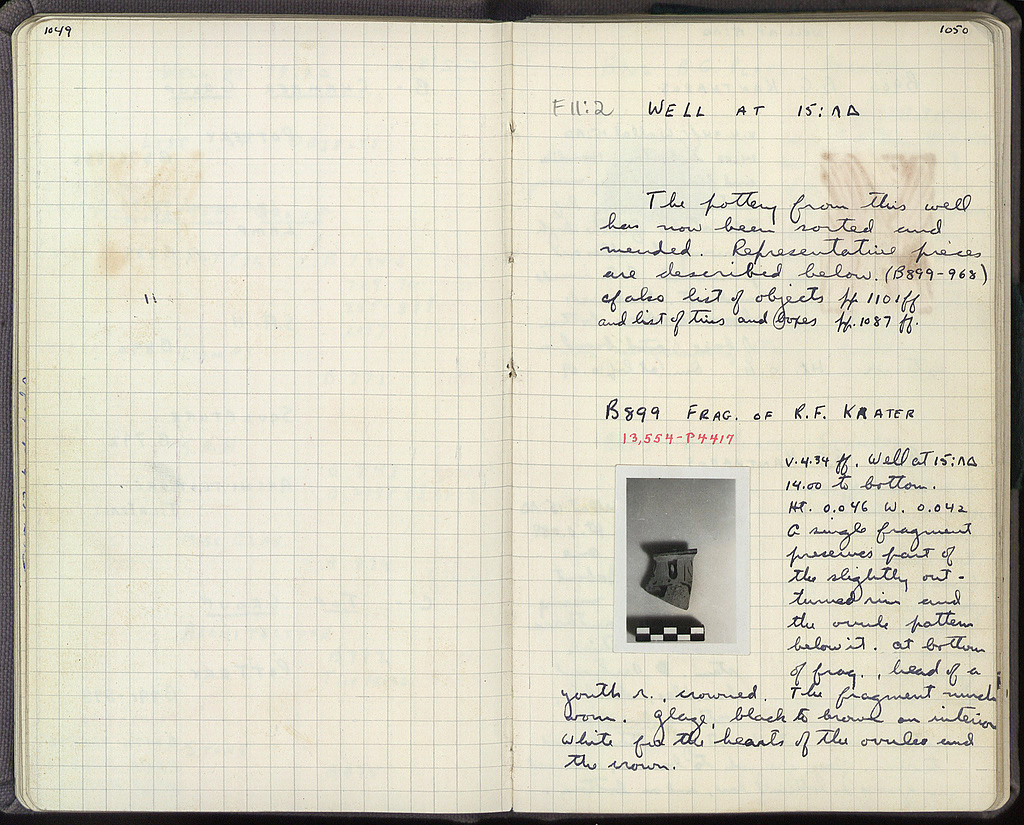 1049
11
1050
F 11:2 WELL AT 15:ΛΔ
The pottery from this well
has now been sorted and
mended. Representative pieces
are described below. (B899-968)
cf also list of objects pp 1101ff
and list of tins and boxes pp. 1087 ff.
B899 FRAG. OF R.F. KRATER
13,554-P4417
V.4.34 ff. Well at 15:ΛΔ
14.00 to bottom.
Ht. 0.046 W. 0.042
A single fragment
preserves part of
the slightly out-
turned rim and
the ovule pattern
below it. At bottom
of frag., head of a
youth r., crowned. The fragment much
worn. Glaze, black to brown on interior
White for the hearts of the ovules and
the crown.